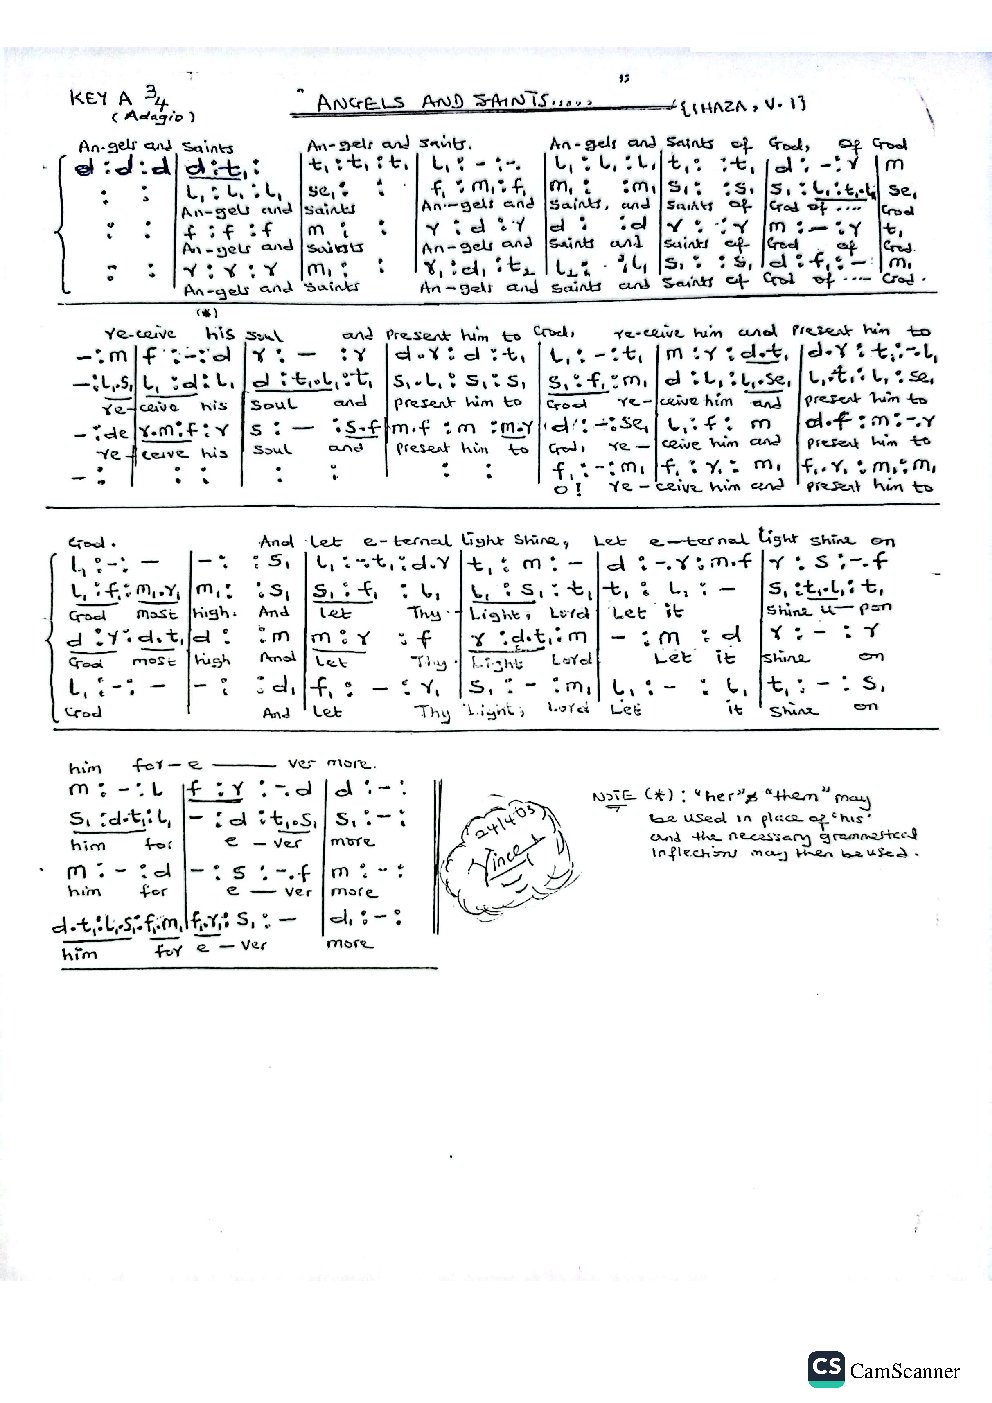 KEY A 3/4
(Adagio)
" ANGELS AND SAINTS.....
"
{IHAZA, V. I}
An-gels and Saints An-gels and saints. An-gels and Saints of God, of God
d : d : d | d : t₁ : | t₁ : t₁ : t₁ | L₁ : - : -. | L₁ : L₁ : L₁ | t₁ : : t₁ | d : - : r | m
: : | L₁ : L₁ : L₁ | se₁ : : | f₁ : m₁ : f₁ | m₁ : : m₁ | s₁ : : s₁ | s₁ : L₁ : t₁.t₁ | se₁
An-gels and saints An-gels and saints, and saints of God of .... God
: : | f : f : f | m : : | r : d : r | d : : d | r : r : r | m : - : r | t₁
An-gels and saints An-gels and saints and saints of God of God
: : | r : r : r | m₁ : : | r₁ : d₁ : t₂ | L₂ : : L₁ | s₁ : : s₁ | d : f₁ : - | m₁
An-gels and saints An-gels and saints and saints of God of .... God.
(*)
re-ceive his soul and present him to God, re-ceive him and present him to
- : m | f : - : d | r : - : r | d.r : d : t₁ | L₁ : - : t₁ | m : r : d.t₁ | d.r : t₁ : -.L₁
- : L₁.s₁ | L₁ : d : L₁ | d : t₁.L₁ : t₁ | s₁.L₁ : s₁ : s₁ | s₁ : f₁ : m₁ | d : L₁ : L₁.se₁ | L₁.t₁ : L₁ : se₁
re-ceive his soul and present him to God re-ceive him and present him to
- : de | r.m : f : r | s : - : s.f | m.f : m : m.r | d : - : se₁ | L₁ : f : m | d.f : m : -.r
re-ceive his soul and present him to God, re-ceive him and present him to
- : | : : | : : | : : | f₁ : - : m₁ | f₁ : r₁ : m₁ | f₁.r₁ : m₁ : m₁
O! re-ceive him and present him to
God. And let e-ternal light shine, let e-ternal light shine on
L₁ : - : - | - : : s₁ | L₁ : -.t₁ : d.r | t₁ : m : - | d : -.r : m.f | r : s : -.f
L₁ : f₁ : m₁.r₁ | m₁ : : s₁ | s₁ : f₁ : L₁ | L₁ : s₁ : t₁ | t₁ : L₁ : - | s₁ : t₁.L₁ : t₁
God most high. And let Thy Light, Lord let it shine u-pon
d : r : d.t₁ | d : : m | m : r : f | r : d.t₁ : m | - : m : d | r : - : r
God most high And let Thy Light Lord Let it shine on
L₁ : - : - | - : : d₁ | f₁ : - : r₁ | s₁ : - : m₁ | L₁ : - : L₁ | t₁ : - : s₁
God And let Thy Light, Lord let it shine on
him for-e ver more.
m : - : L | f : r : -.d | d : - :
s₁ : d.t₁ : L₁ | - : d : t₁.s₁ | s₁ : - :
him for e - ver more
m : - : d | - : s : -.f | m : - :
him for e - ver more
d.t₁ : L₁.s₁ : f₁.m₁ | f₁.r₁ : s₁ : - | d₁ : - :
him for e - ver more
24/4/03
Vincent
NOTE (*) : "her" & "them" may
be used in place of "his"
and the necessary grammatical
inflections may then be used.
CS CamScanner